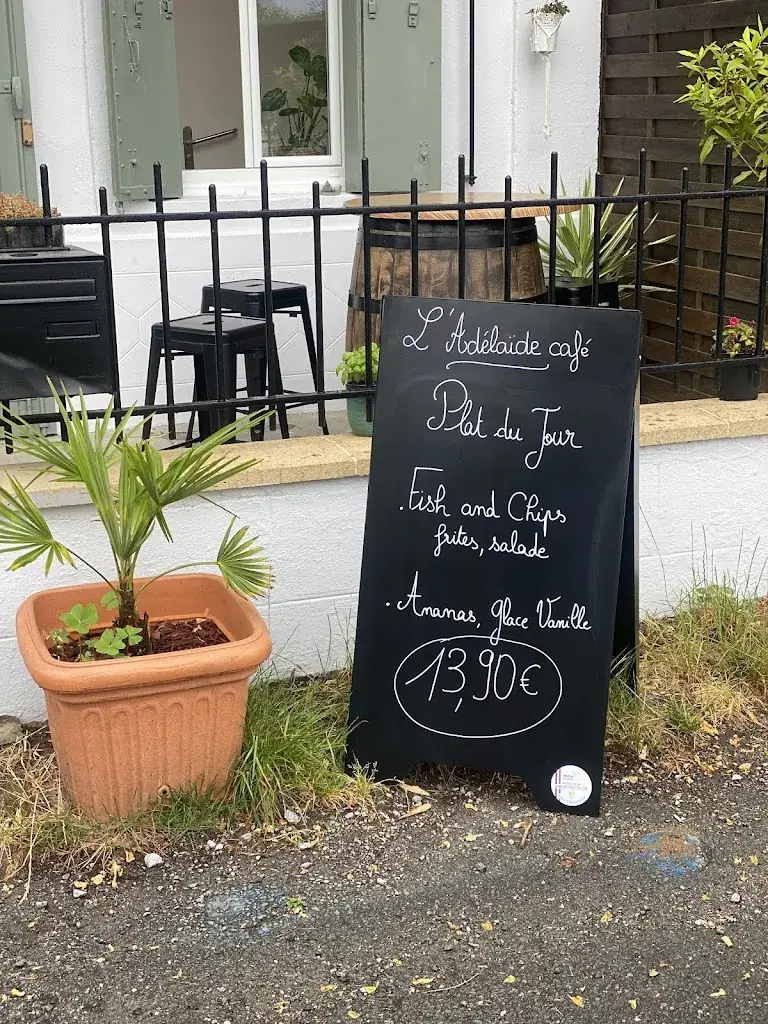 L'Adélaïde café
Plat du Jour
. Fish and Chips
frites, salade
. Ananas, glace Vanille
13,90€